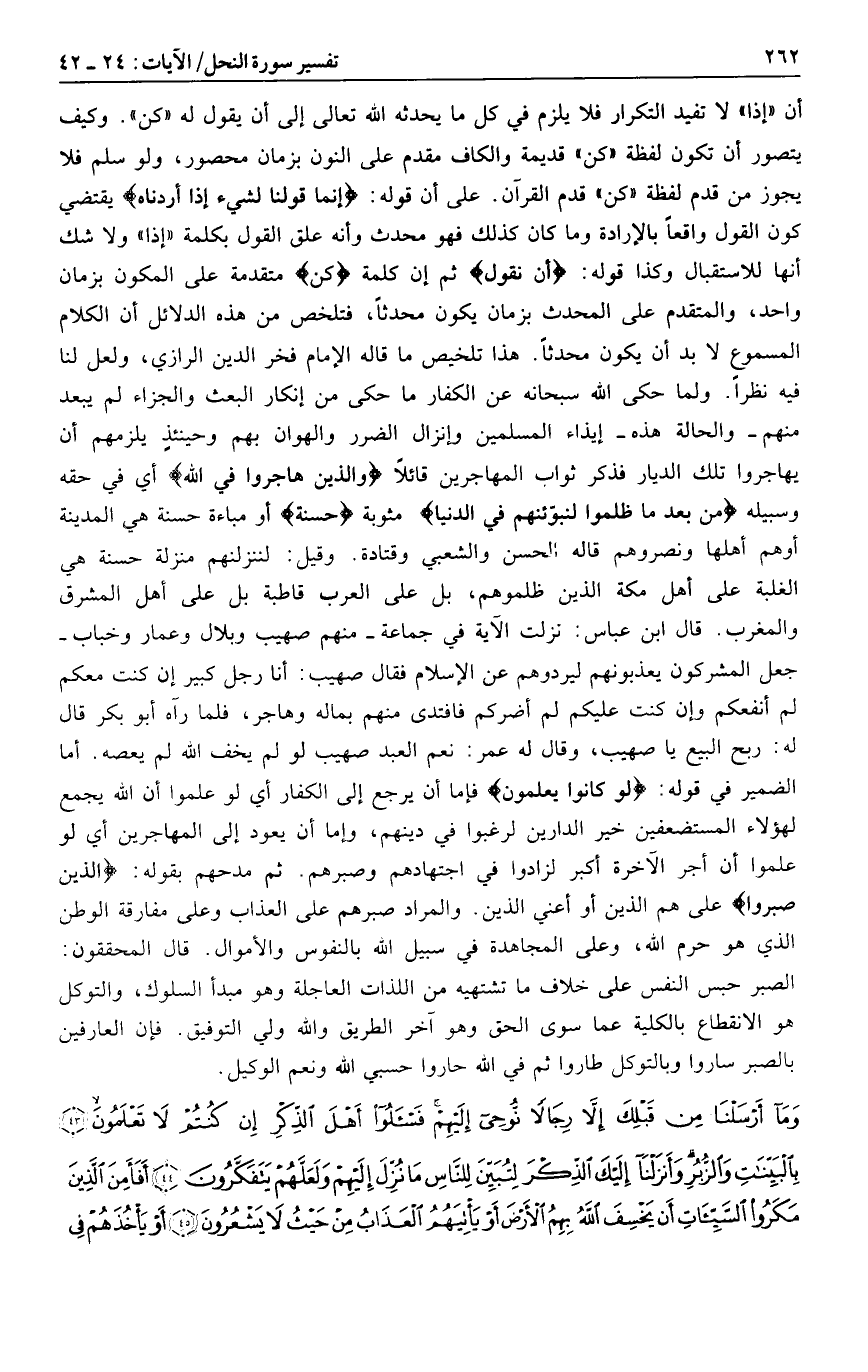 ٢٦٢
تفسير سورة النحل/ الآيات: ٢٤ ـ ٤٢
أن «إذا» لا تفيد التكرار فلا يلزم في كل ما يحدثه الله تعالى إلى أن يقول له «كن». وكيف
يتصور أن تكون لفظة «كن» قديمة والكاف مقدم على النون بزمان محصور، ولو سلم فلا
يجوز من قدم لفظة «كن» قدم القرآن. على أن قوله: ﴿إنما قولنا لشيء إذا أردناه﴾ يقتضي
كون القول واقعاً بالإرادة وما كان كذلك فهو محدث وأنه علق القول بكلمة «إذا» ولا شك
أنها للاستقبال وكذا قوله: ﴿أن نقول﴾ ثم إن كلمة ﴿كن﴾ متقدمة على المكون بزمان
واحد، والمتقدم على المحدث بزمان يكون محدثاً، فتلخص من هذه الدلائل أن الكلام
المسموع لا بد أن يكون محدثاً. هذا تلخيص ما قاله الإمام فخر الدين الرازي، ولعل لنا
فيه نظراً. ولما حكى الله سبحانه عن الكفار ما حكى من إنكار البعث والجزاء لم يبعد
منهم ـ والحالة هذه ـ إيذاء المسلمين وإنزال الضرر والهوان بهم وحينئذٍ يلزمهم أن
يهاجروا تلك الديار فذكر ثواب المهاجرين قائلاً ﴿والذين هاجروا في الله﴾ أي في حقه
وسبيله ﴿من بعد ما ظلموا لنبوّئنهم في الدنيا﴾ مثوبة ﴿حسنة﴾ أو مباءة حسنة هي المدينة
أوهم أهلها ونصروهم قاله الحسن والشعبي وقتادة. وقيل: لننزلنهم منزلة حسنة هي
الغلبة على أهل مكة الذين ظلموهم، بل على العرب قاطبة بل على أهل المشرق
والمغرب. قال ابن عباس: نزلت الآية في جماعة ـ منهم صهيب وبلال وعمار وخباب ـ
جعل المشركون يعذبونهم ليردوهم عن الإسلام فقال صهيب: أنا رجل كبير إن كنت معكم
لم أنفعكم وإن كنت عليكم لم أضركم فافتدى منهم بماله وهاجر، فلما رآه أبو بكر قال
له: ربح البيع يا صهيب، وقال له عمر: نعم العبد صهيب لو لم يخف الله لم يعصه. أما
الضمير في قوله: ﴿لو كانوا يعلمون﴾ فإما أن يرجع إلى الكفار أي لو علموا أن الله يجمع
لهؤلاء المستضعفين خير الدارين لرغبوا في دينهم، وإما أن يعود إلى المهاجرين أي لو
علموا أن أجر الآخرة أكبر لزادوا في اجتهادهم وصبرهم. ثم مدحهم بقوله: ﴿الذين
صبروا﴾ على هم الذين أو أعني الذين. والمراد صبرهم على العذاب وعلى مفارقة الوطن
الذي هو حرم الله، وعلى المجاهدة في سبيل الله بالنفوس والأموال. قال المحققون:
الصبر حبس النفس على خلاف ما تشتهيه من اللذات العاجلة وهو مبدأ السلوك، والتوكل
هو الانقطاع بالكلية عما سوى الحق وهو آخر الطريق والله ولي التوفيق. فإن العارفين
بالصبر ساروا وبالتوكل طاروا ثم في الله حاروا حسبي الله ونعم الوكيل.
وَمَآ أَرْسَلْنَا مِن قَبْلِكَ إِلَّا رِجَالًا نُّوحِىٓ إِلَيْهِمْ ۚ فَسْـَٔلُوٓا۟ أَهْلَ ٱلذِّكْرِ إِن كُنتُمْ لَا تَعْلَمُونَ ۙ ﴿٤٣﴾
بِٱلْبَيِّنَـٰتِ وَٱلزُّبُرِ ۗ وَأَنزَلْنَآ إِلَيْكَ ٱلذِّكْرَ لِتُبَيِّنَ لِلنَّاسِ مَا نُزِّلَ إِلَيْهِمْ وَلَعَلَّهُمْ يَتَفَكَّرُونَ ﴿٤٤﴾ أَفَأَمِنَ ٱلَّذِينَ
مَكَرُوا۟ ٱلسَّيِّـَٔاتِ أَن يَخْسِفَ ٱللَّهُ بِهِمُ ٱلْأَرْضَ أَوْ يَأْتِيَهُمُ ٱلْعَذَابُ مِنْ حَيْثُ لَا يَشْعُرُونَ ﴿٤٥﴾ أَوْ يَأْخُذَهُمْ فِى